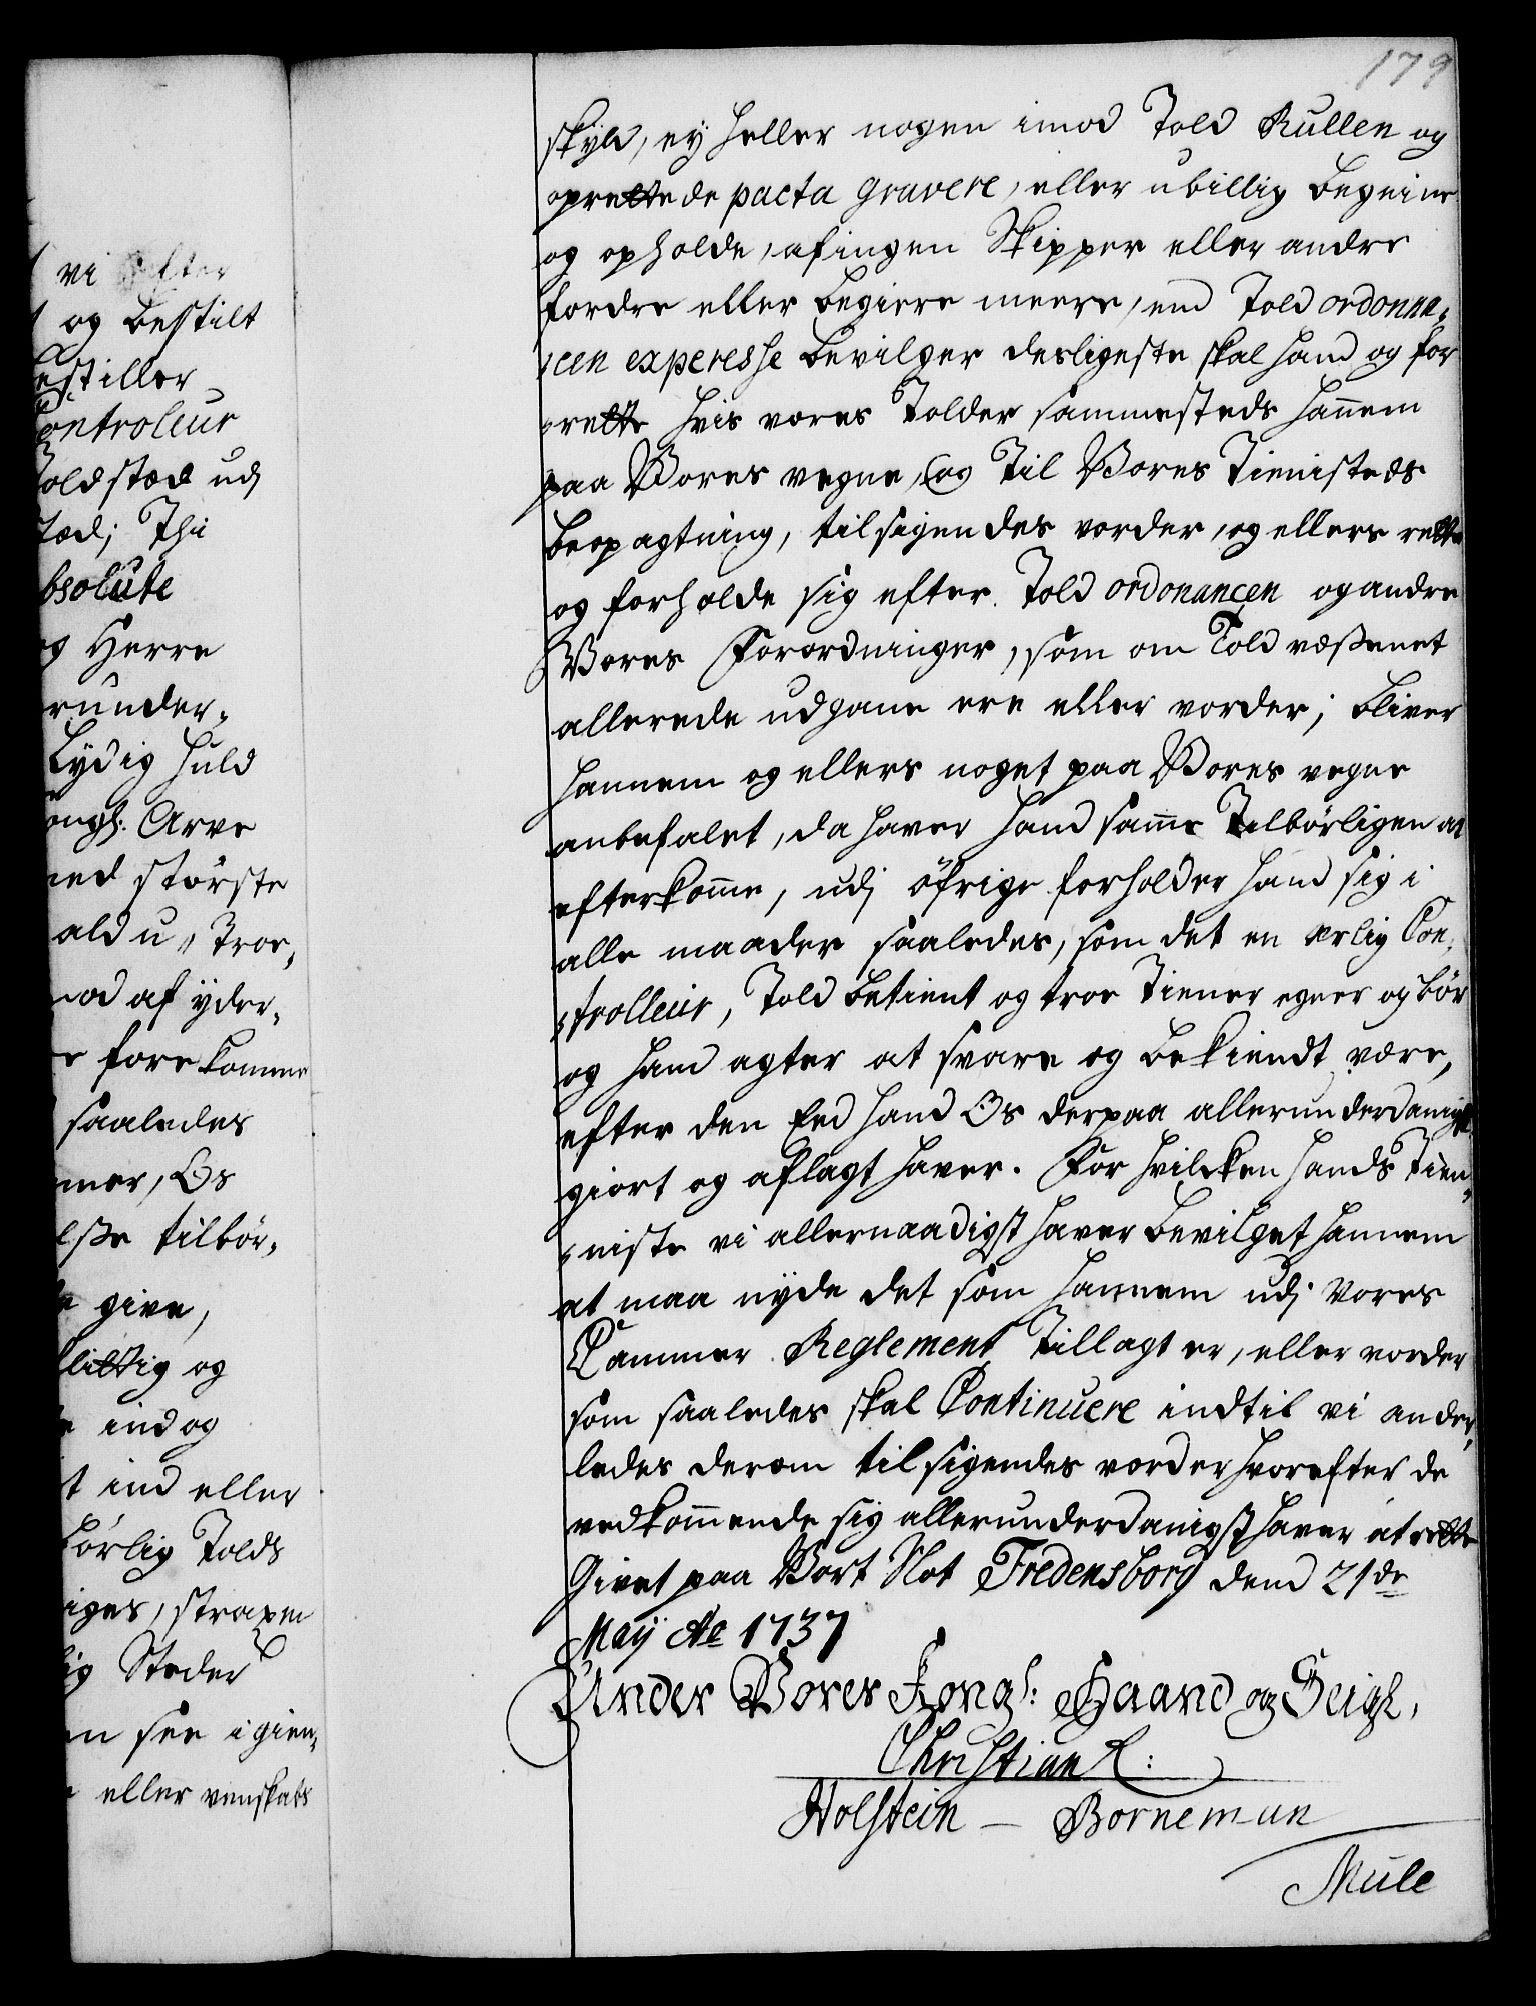 179
vi efter
og bestilt
bestiller
Controleur
Toldstæd udj
stæd; Thi
absolute
og Herre
erunder-
Lydig huld
Kongl: Arve
med störste
Troe,
imod af yder,
forekomme
saaledes
Os
tilbör,
give,
flittig og
ind og
ind eller
börlig Told
Steder
see igien,
eller venskabs
skyld, ey heller nogen imod Told Rullen og
oprettede pacta gravere, eller ubillig begeire
og opholde, af ingen Skipper eller andre
fordre eller begiere meere, end Told ordonna,
,cen experesse bevilger desligeste skal hand og for
,rette hvis vores Tolder sammesteds hannem
paa Vores vegne, og Til Vores Tienisteds
beopagtning, tilsigendes vorder, og ellers rette
og forholde sig efter Told ordonancen og andre
Vores Forordninger, som om Told væßenet
allerede udgane ere eller vorder; bliver
hannem og ellers noget paa Vores vegne
anbefalet, da haver hand same Tilbörligen at
efterkome, udj öfrige forholder hand sig i
alle maader saaledes, som det en ærlig Con,
,trolleur, Told betient og troe Tiener egner og bör
og hand agter at svare og bekiendt være,
efter den Eed hand Os derpaa allerunderdanigst
giort og aflagt haver. For hvilcken hands Tien,
,niste vi allernaadigst haver bevilget hannem
at maa nyde det som hannem udj Vores
Cammer Reglement Tillagt er, eller vorder
som saaledes skal Continuere indtil vi ander,
ledes derom tilsigendes vorder hvorefter de
vedkommende sig allerunderdanigst haver at rette
Givet paa Vort Slot Fredensborg dend 21de
Maij Ao 1737
Under Vores Kongl: Haand og Seigl,
Christian R:
Holstein – Borneman
Mule